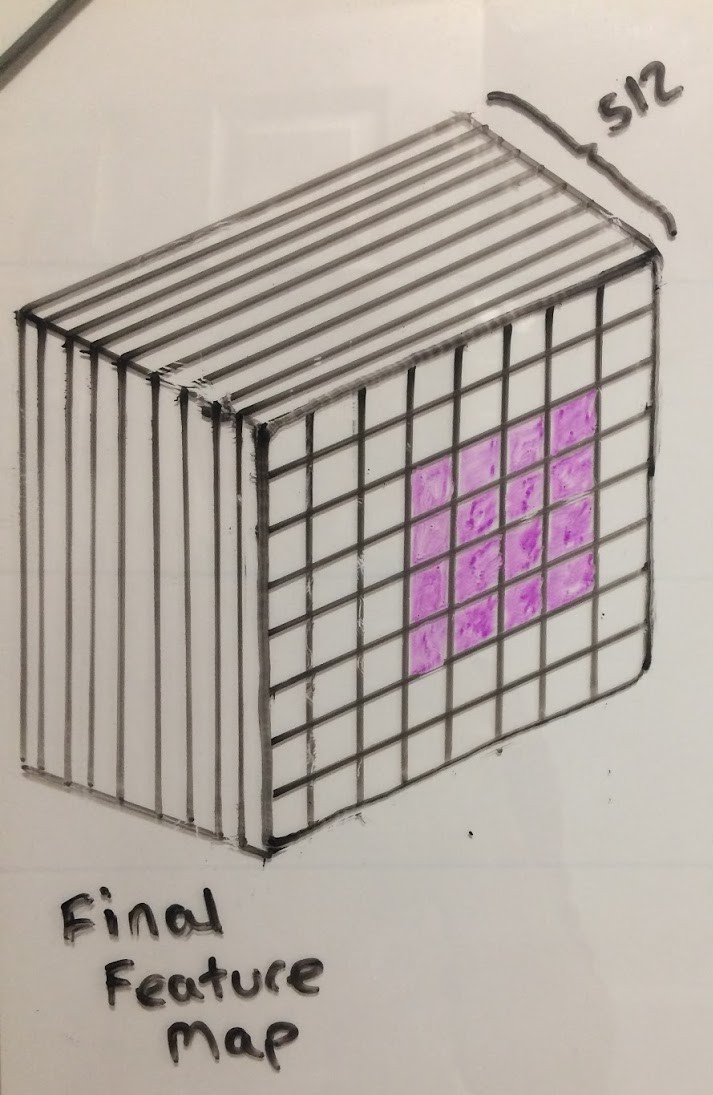 512
Final
Feature
Map